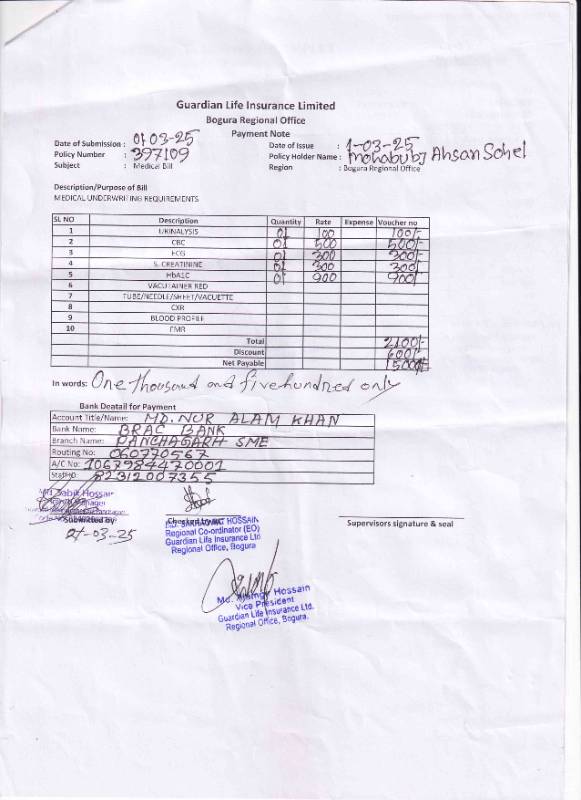 Guardian Life Insurance Limited
Bogura Regional Office
Payment Note
Date of Submission : 01-03-25 Date of Issue : 1-03-25
Policy Number : 397109 Policy Holder Name : Mohabubj Ahsan Sohel
Subject : Medical Bill Region : Bogura Regional Office
Description/Purpose of Bill
MEDICAL UNDERWRITING REQUIREMENTS
SL NO Description Quantity Rate Expense Voucher no
1 URINALYSIS 01 100 100/-
2 CBC 01 500 500/-
3 ECG 01 300 300/-
4 S. CREATININE 01 300 300/-
5 HbA1C 01 900 900/-
6 VACUTAINER RED
7 TUBE/NEEDLE/SHEET/VACUETTE
8 CXR
9 BLOOD PROFILE
10 FMR
Total 2100/-
Discount 600/-
Net Payable 1500/-
In words: One thousand and five hundred only
Bank Deatail for Payment
Account Title/Name: MD. NUR ALAM KHAN
Bank Name: BRAC BANK
Branch Name: PANCHAGARH SME
Routing No: 060770567
A/C No: 1067984470001
StaffID: 82312007355
Md. Sabik Hossain
Submitted by Supervisors signature & seal
21-03-25
HOSSAIN
Regional Co-ordinator (EO)
Guardian Life Insurance Ltd
Regional Office, Bogura
Hossain
Vice President
Guardian Life Insurance Ltd.
Regional Office, Bogura.